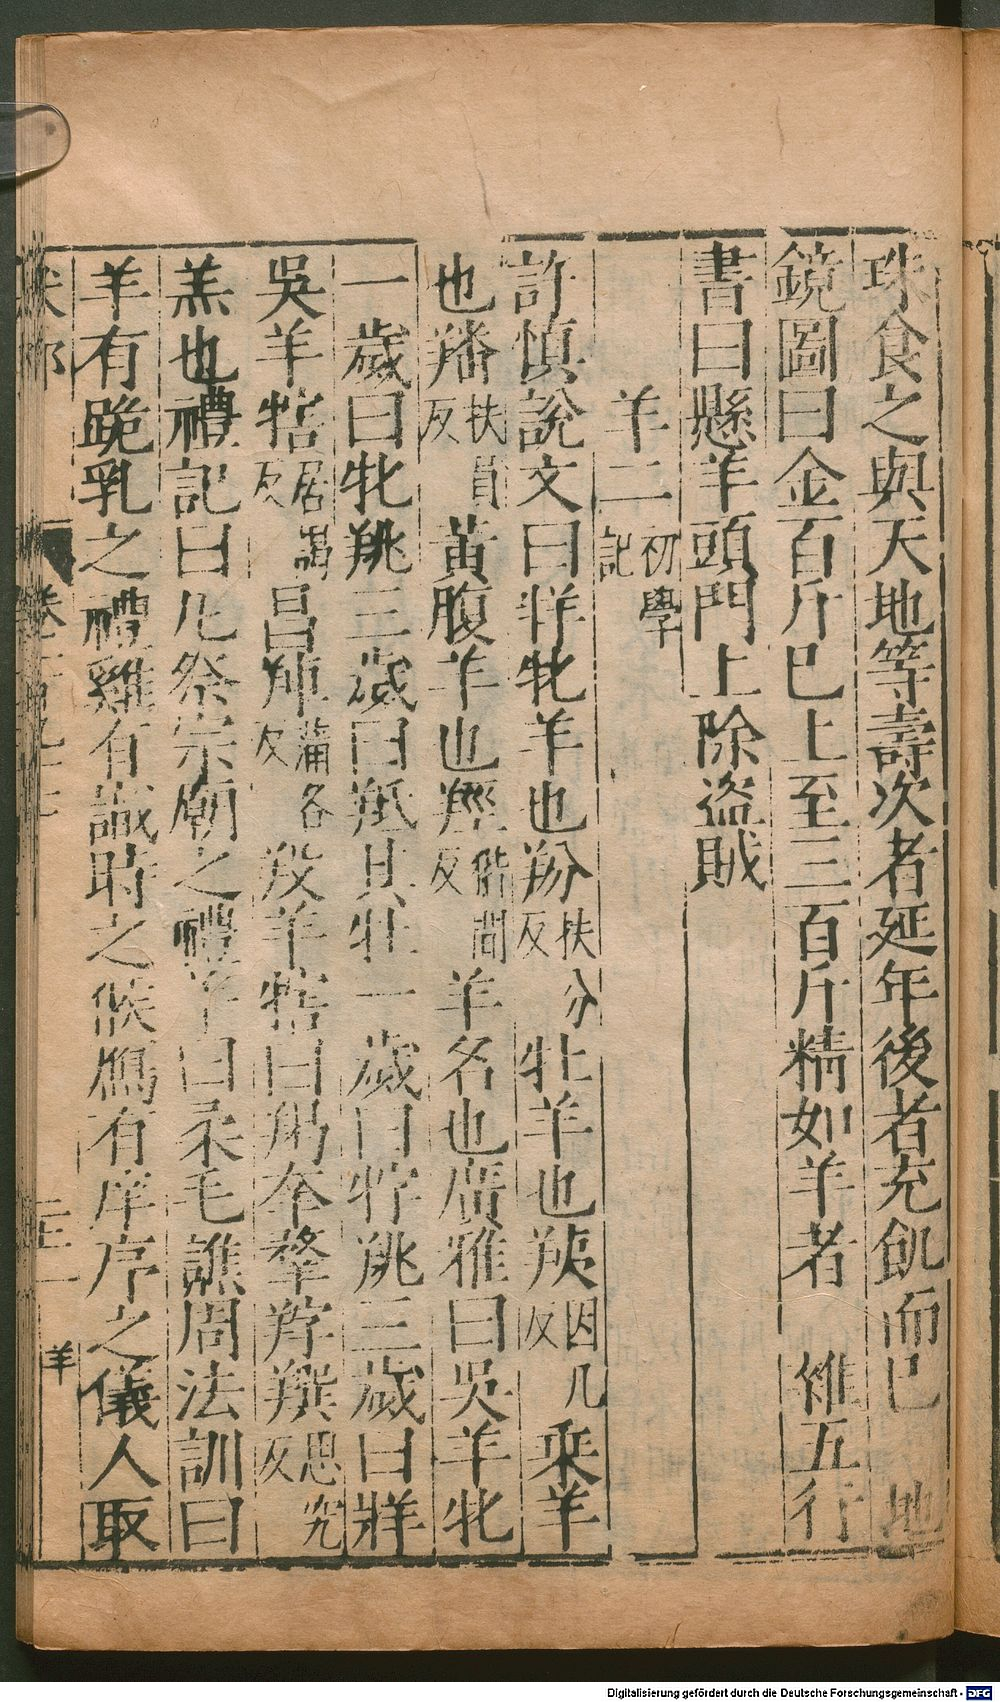 珠食之與天地等壽次者延年後者充飢而巳 地
鏡圖曰金百斤巳上至三百斤精如羊者 雜五行
書曰懸羊頭門上除盜賊
羊二初學記
許慎說文曰牂牝羊也羒扶分反牡羊也羠因几反乘羊
也羳扶員反黃腹羊也羥偕間反羊名也廣雅曰吳羊牝
一歲曰牝𦍩三歲曰羝其牡一歲曰牸𦍩三歲曰牂
吳羊犗居謁反曰𦍹蒲各反羖羊犗曰羯夲羍羜𦏁思兖反
羔也禮記曰凡祭宗廟之禮羊曰柔毛譙周法訓曰
羊有跪乳之禮雞有識時之候鴈有庠序之儀人取
羊
Digitalisierung gefördert durch die Deutsche Forschungsgemeinschaft - DFG